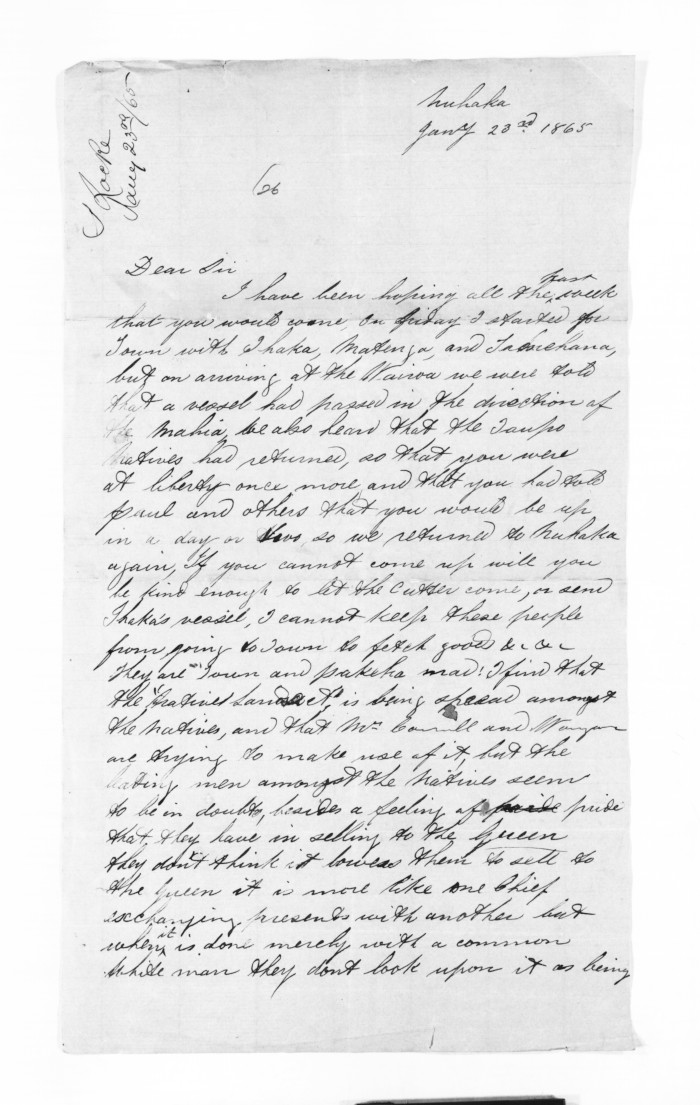 S Locke
Jany 23rd/65
26
Nuhaka
Jany 23rd 1865
Dear Sir
I have been hoping all the past week
that you would come, On friday I started for
Town with Ihaka, Matenga, and Tamehana,
but on arriving at the Wairoa we were told
that a vessel had passed in the direction of
the Mahia, We also heard that the Taupo
Natives had returned, so that you were
at liberty once more, and that you had told
Paul and others that you would be up
in a day or two so we returned to Nuhaka
again, If you cannot come up will you
be kind enough to let the Cutter come, or send
Ihaka's vessel, I cannot keep these people
from going to Town to fetch goods &c &c
They are Town and pakeha mad! I find that
the "Natives Lands Act," is being spread amongst
the Natives, and that Mr Carroll and
are trying to make use of it, but the
leading men amongst the Natives seem
to be in doubts, besides a feeling of pride pride
that, they have in selling to the Queen
they don't think it lowers them to sell to
the Queen it is more like one Chief
exchanging presents with another but
when it is done merely with a common
White man they dont look upon it as being